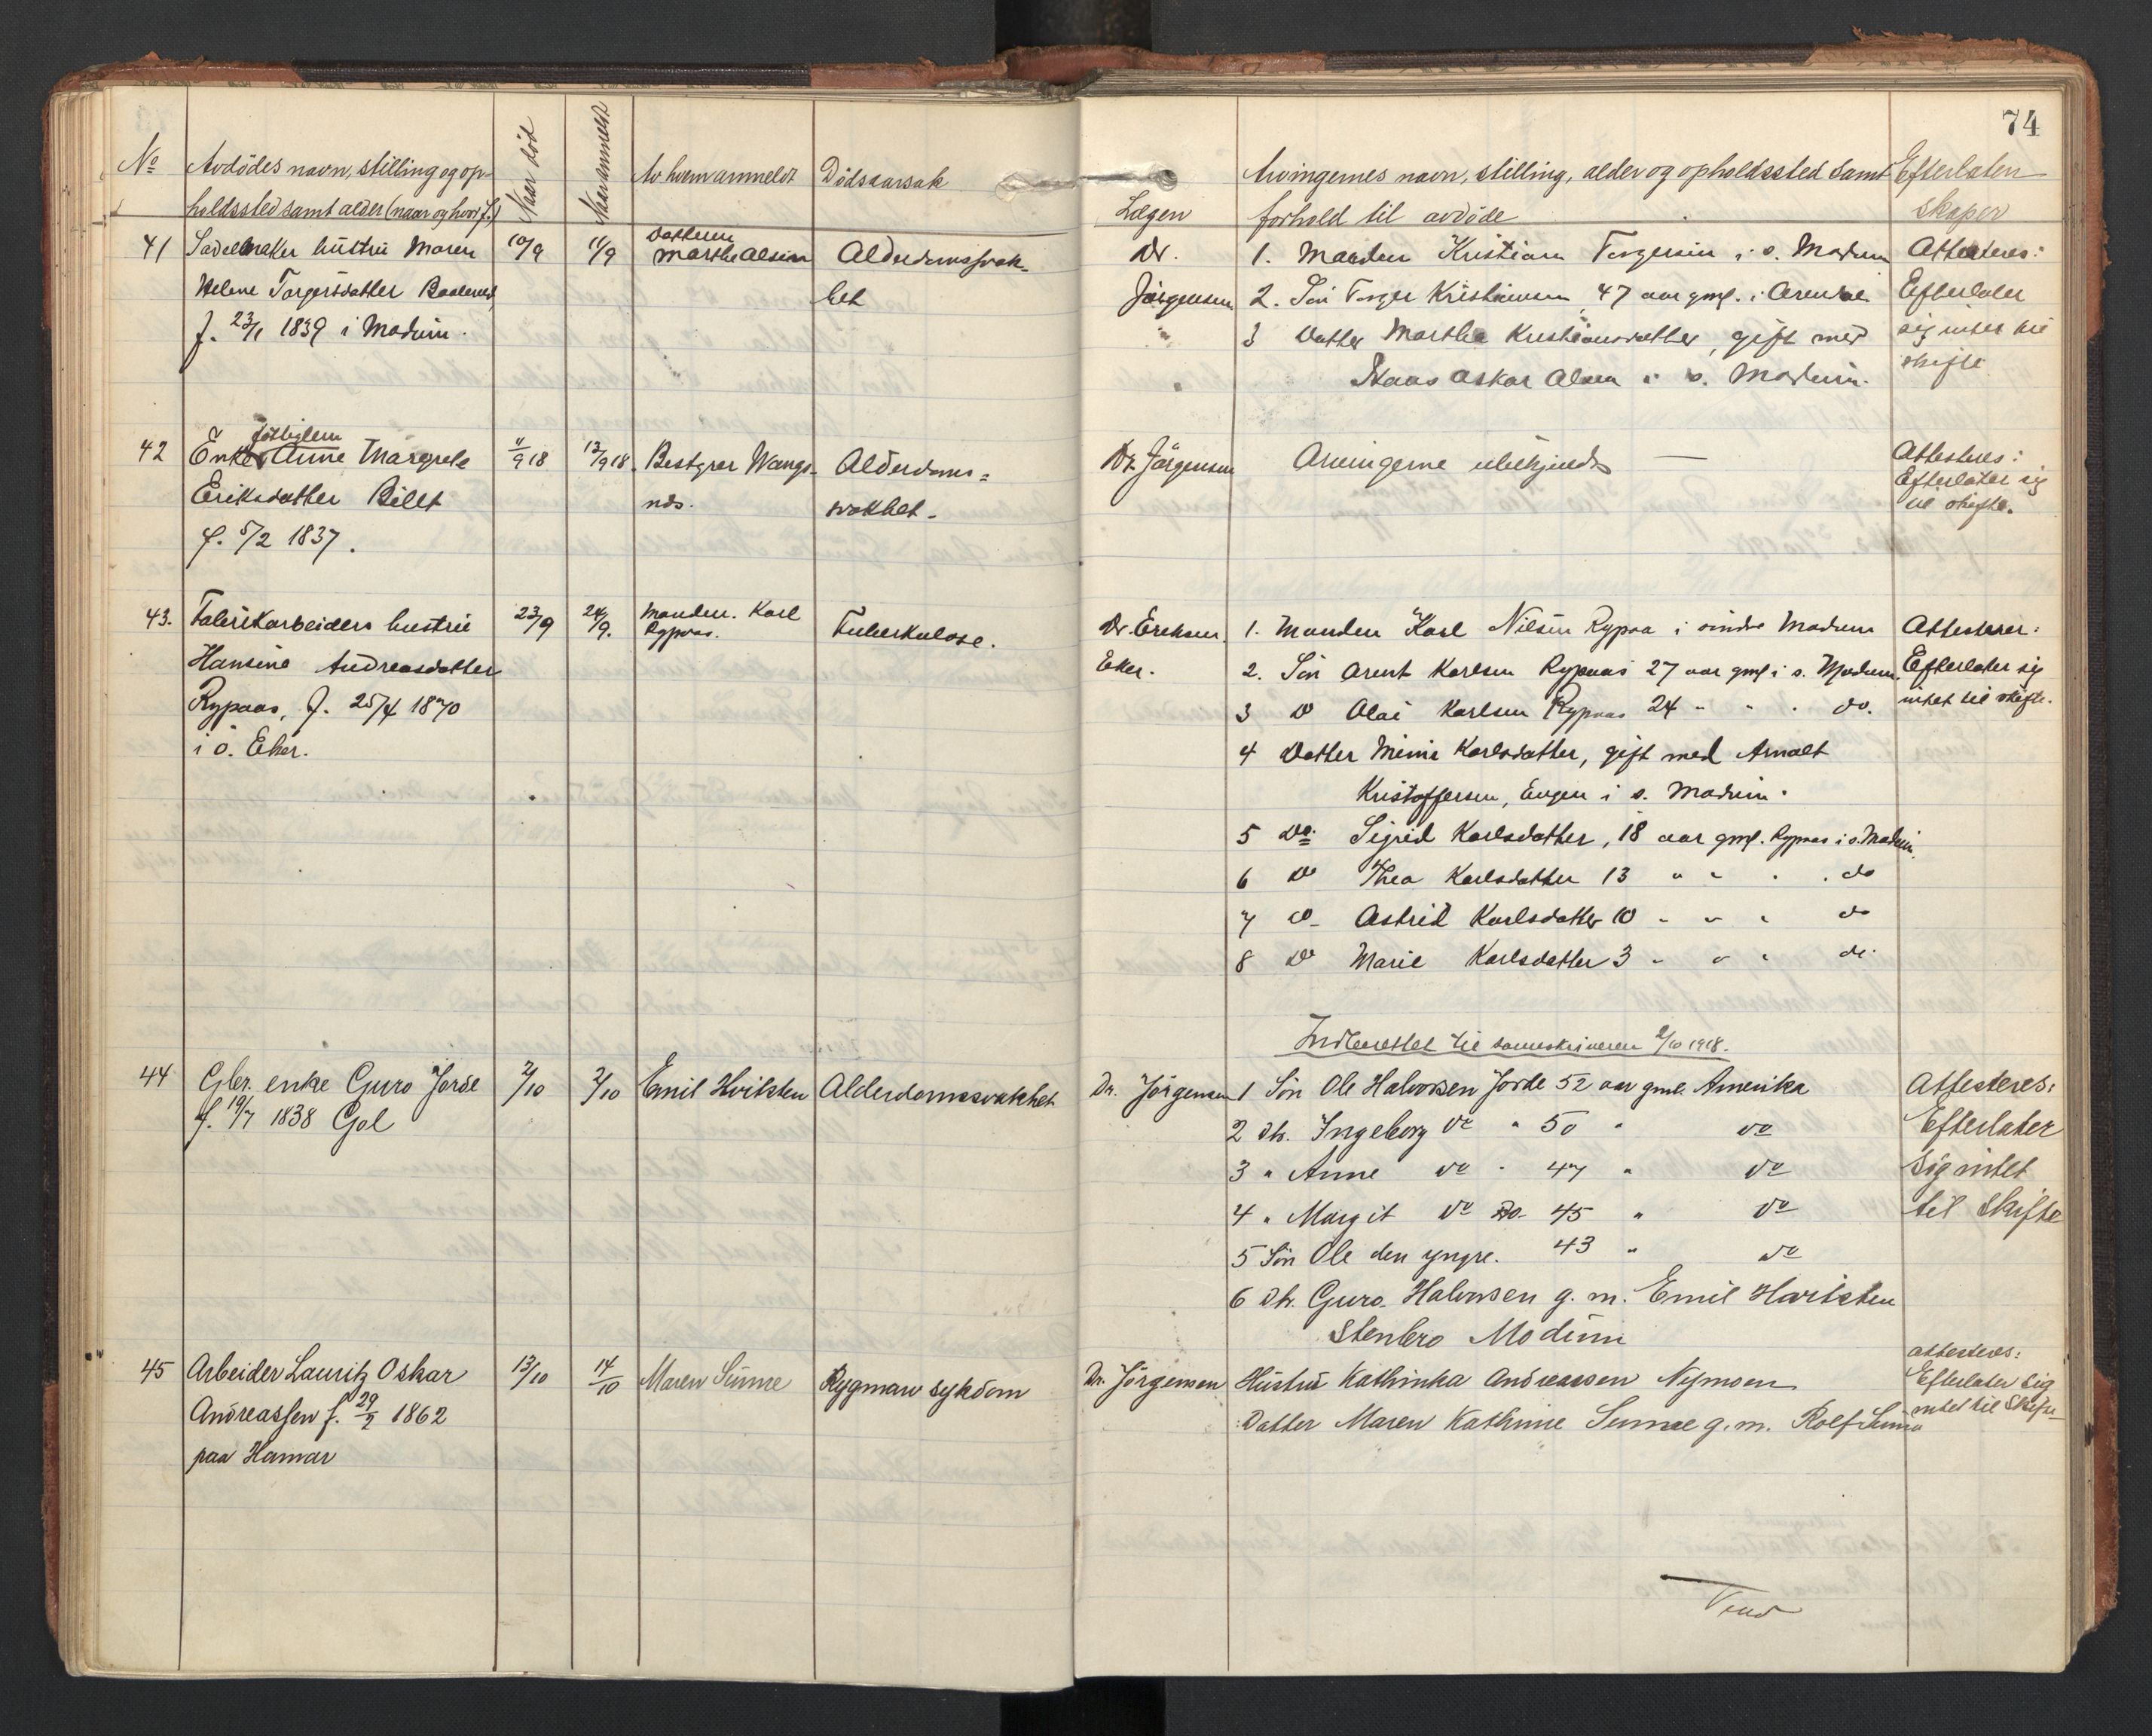 74
No Avdödes navn, stilling og op-
holdssted samt alder (naar og hvor f.)
Naar död
Naar anmeldt
Av hvem anmeldt
Dödsaarsak
Lægen
Arvingernes navn, stilling, alder og opholdssted samt
forhold til avdöde
Efterladen-
skaper
41 Sadelmaker hustru Maren
Helene Torgersdatter
f. 23/1 1839 i Modum.
10/9
11/9
Datteren
Marthe Olsen
Alderdomssvak-
het
Dr.
Jörgensen
1. Manden Kristian Torgersen i s. Modum
2. Sön Torger Kristiansen, 47 aar gml. i Arendal
3 Datter Marthe Kristiansdatter, gift med
Oskar Olsen i s. Modum.
Attesteres:
Efterlater
sig intet til
skifte
42 Enke Anne Margrete
Eriksdatter Billet
f. 5/2 1837.
11/9 18
12/9 18.
Bestyrer Wangs-
nes.
Alderdoms=
svakhet.
Dr. Jörgensen
Arvingerne ubekjendt —
Attesteres:
Efterlater sig
til skifte.
43. Fabrikarbeiders hustru
Hansine Andreasdatter
Rypaas, f. 25/4 1870
i ö. Eker.
23/9
24/9.
Manden. Karl
Rypaas.
Tuberkulose.
Dr. Eriksen,
Eker.
1. Manden Karl Nilsen Rypaa i söndre Modum
2. Sön Arent Karlsen Rypaas 27 aar gml i s. Modum.
3 Do Olai Karlsen Rypaas 24 " " " do.
4 Datter Mimi Karlsdatter, gift med Arnalt
Kristoffersen, Engen i s. Modum.
5 Do. Sigrid Karlsdatter, 18 aar gml. Rypaas i s. Modum.
6 Do Thea Karlsdatter 13 " " " do
7 Do Astrid Karlsdatter 10 " " " do
8 Do Marie Karlsdatter 3 " " " do.
Attesteres:
Efterlater sig
intet til skifte.
Indberettet til sorenskriveren 2/10 1918.
44 Gbr. enke Guro Jorde
f. 19/7 1838 Gol
2/10
2/10
Emil Hvitsten
Alderdomssvakhet
Dr. Jörgensen
1 Sön Ole Halvorsen Jorde 52 aar gml. Amerika
2 Dtr. Ingeborg do " 50 " do
3 " Anne do " 47 " do
4 " Margit do Do 45 " do
5 Sön Ole den yngre. 43 " do
6 Dtr. Guro Halvorsen g. m. Emil Hvitsten
Stenbro Modum
Attesteres:
Efterlater
sig intet
til skifte
45 Arbeider Lauritz Oskar
Andreassen f. 29/2 1862
paa Hamar
13/10
14/10
Maren Sunne
Rygmarv sykdom
Dr. Jörgensen
Hustru Kathinka Andreassen Nymoen
Datter Maren Kathrine Sunne g. m. Rolf Sunne
Attesteres:
Efterlater sig
intet til skifte
Vend